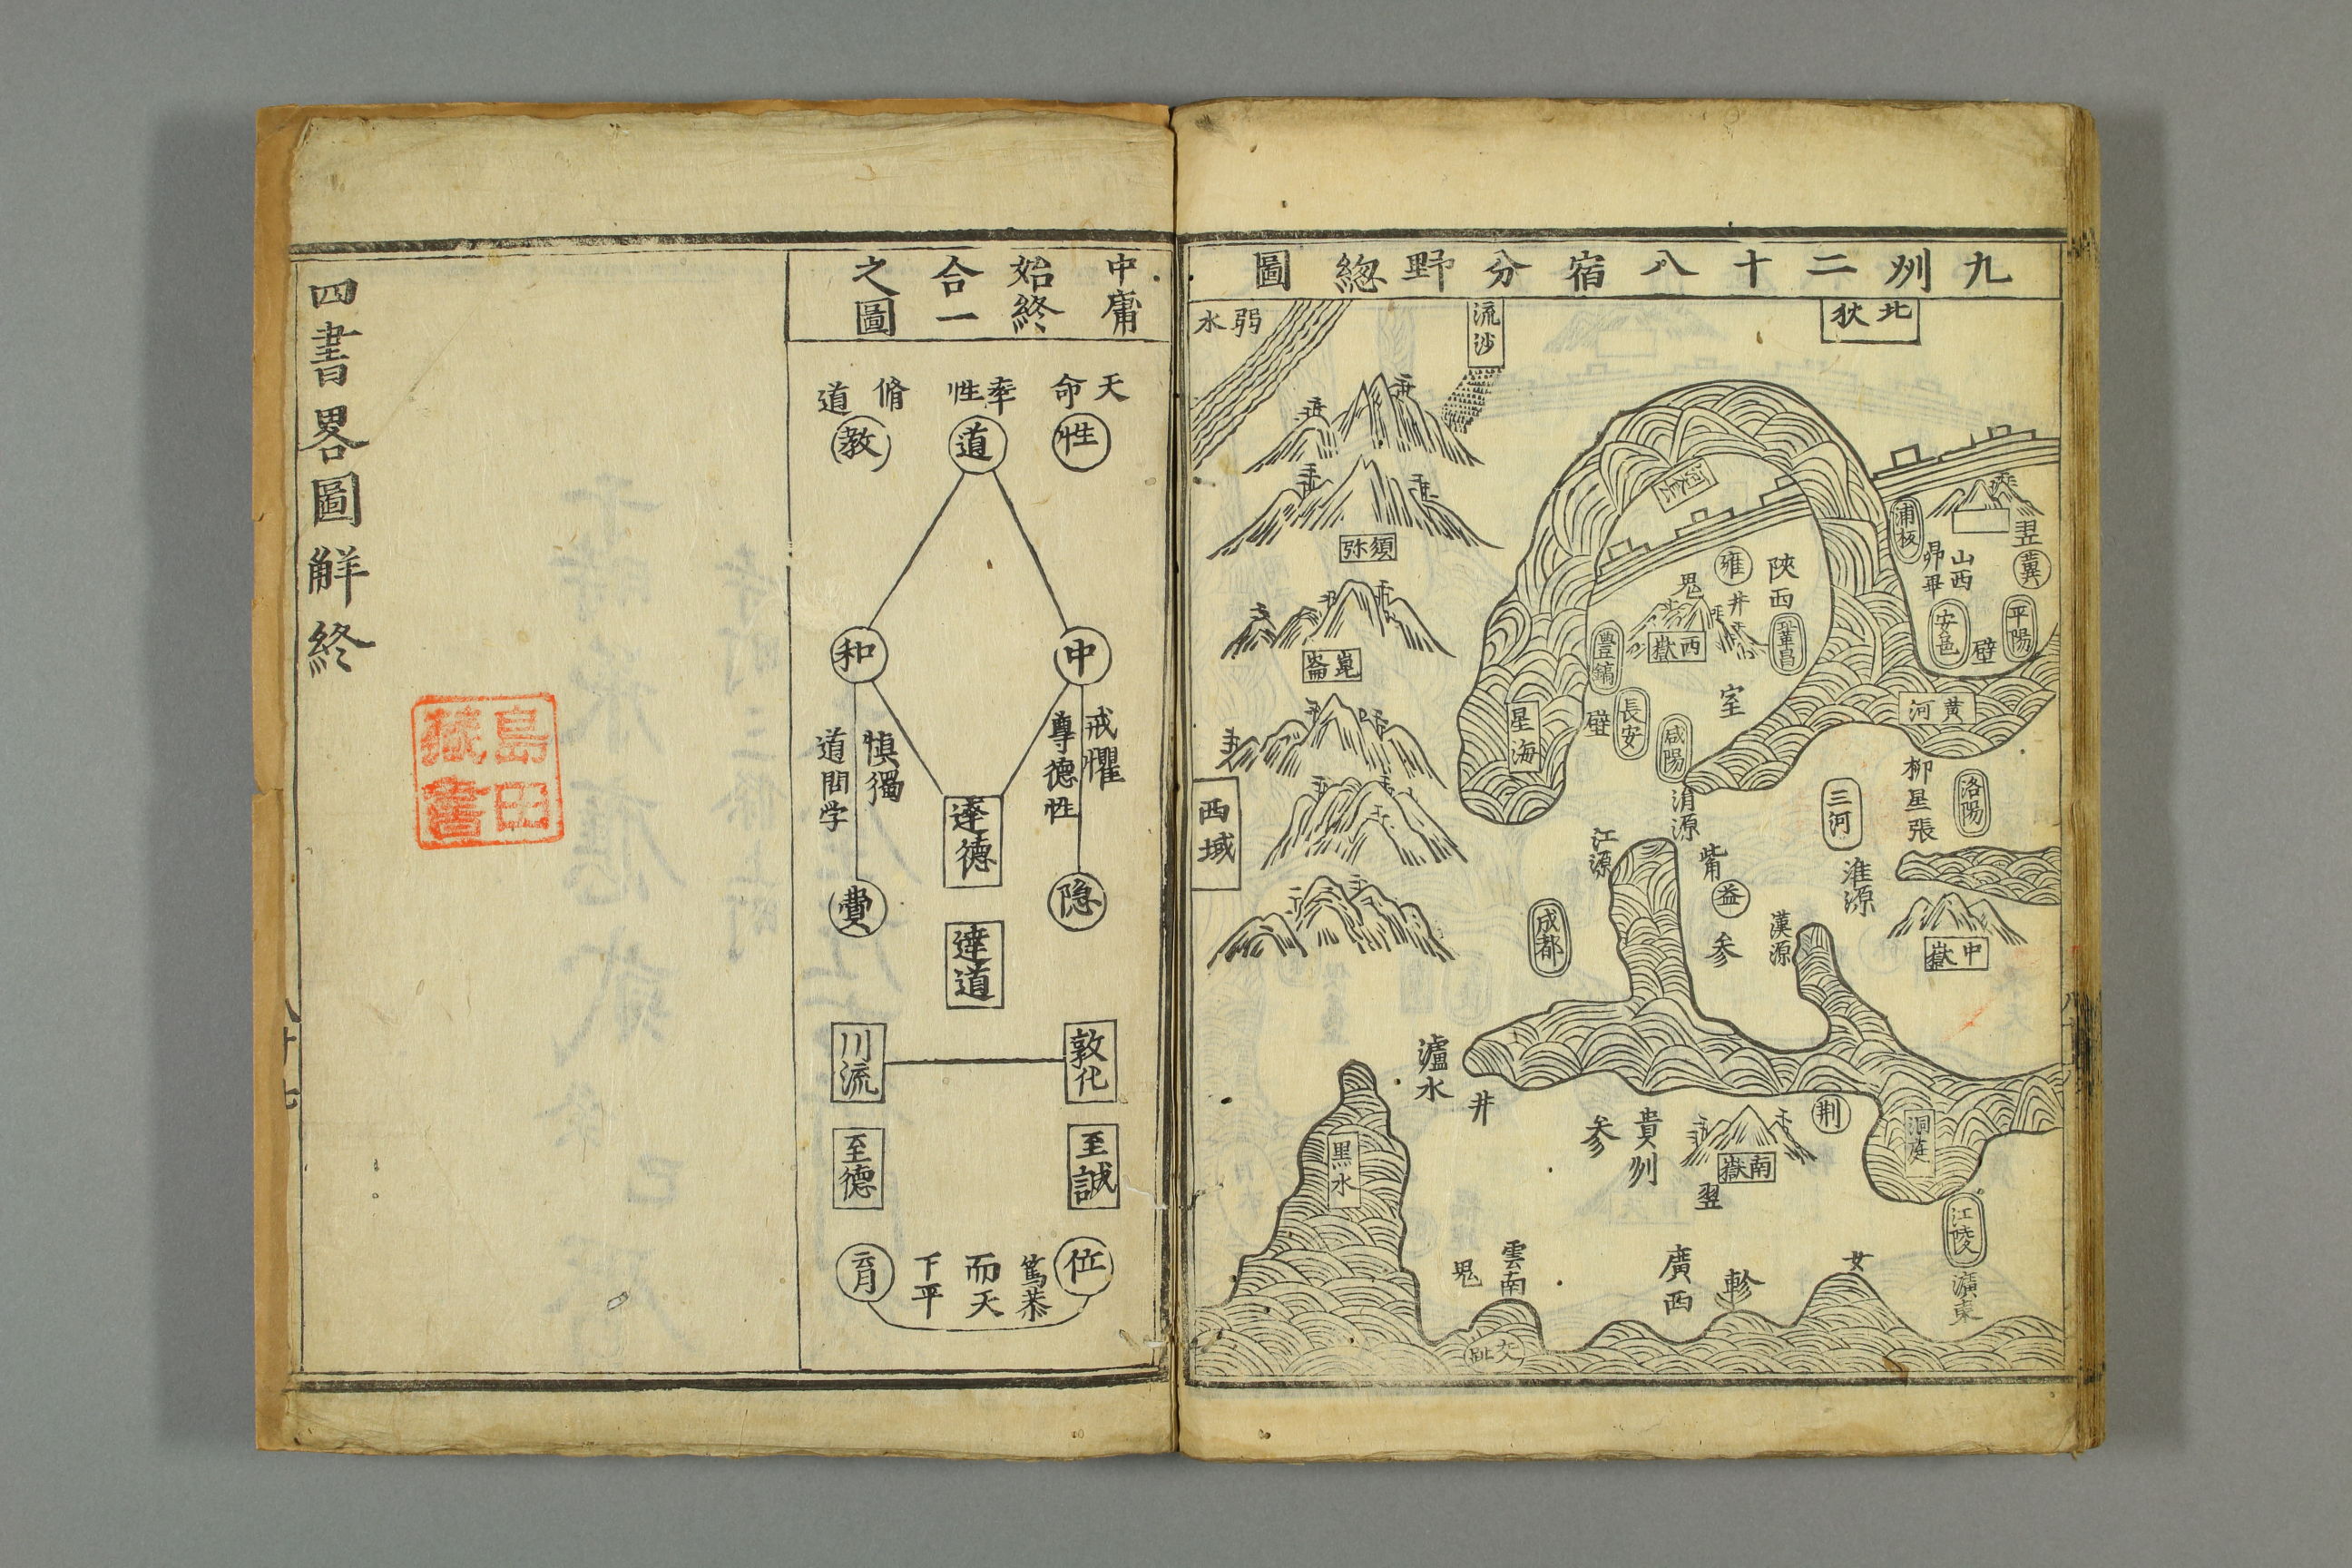 九州二十八宿分野總圖
北狄
流沙
弱水
蒲板
翌
冀
山西
昴畢
平陽
安邑
壁
黃河
陝西
雍
井
鬼
西嶽
鞏昌
豐鎬
室
長安
壁
咸陽
星海
須弥
崑崙
西域
洛陽
柳星張
三河
淮源
中嶽
渭源
江源
觜
益
参
漢源
成都
瀘水
井
黒水
荆
洞庭
南嶽
翌
貴州
参
江陵
廣東
女
軫
廣西
雲南
鬼
交趾
中庸
始終
合一
之圖
天命
性
率性
道
脩道
教
中
和
戒懼
尊德性
慎獨
道問学
達德
隐
費
達道
敦化
川流
至誠
至德
位
篤恭
而天
下平
育
四書畧圖解終
島田
蔵書
八十七